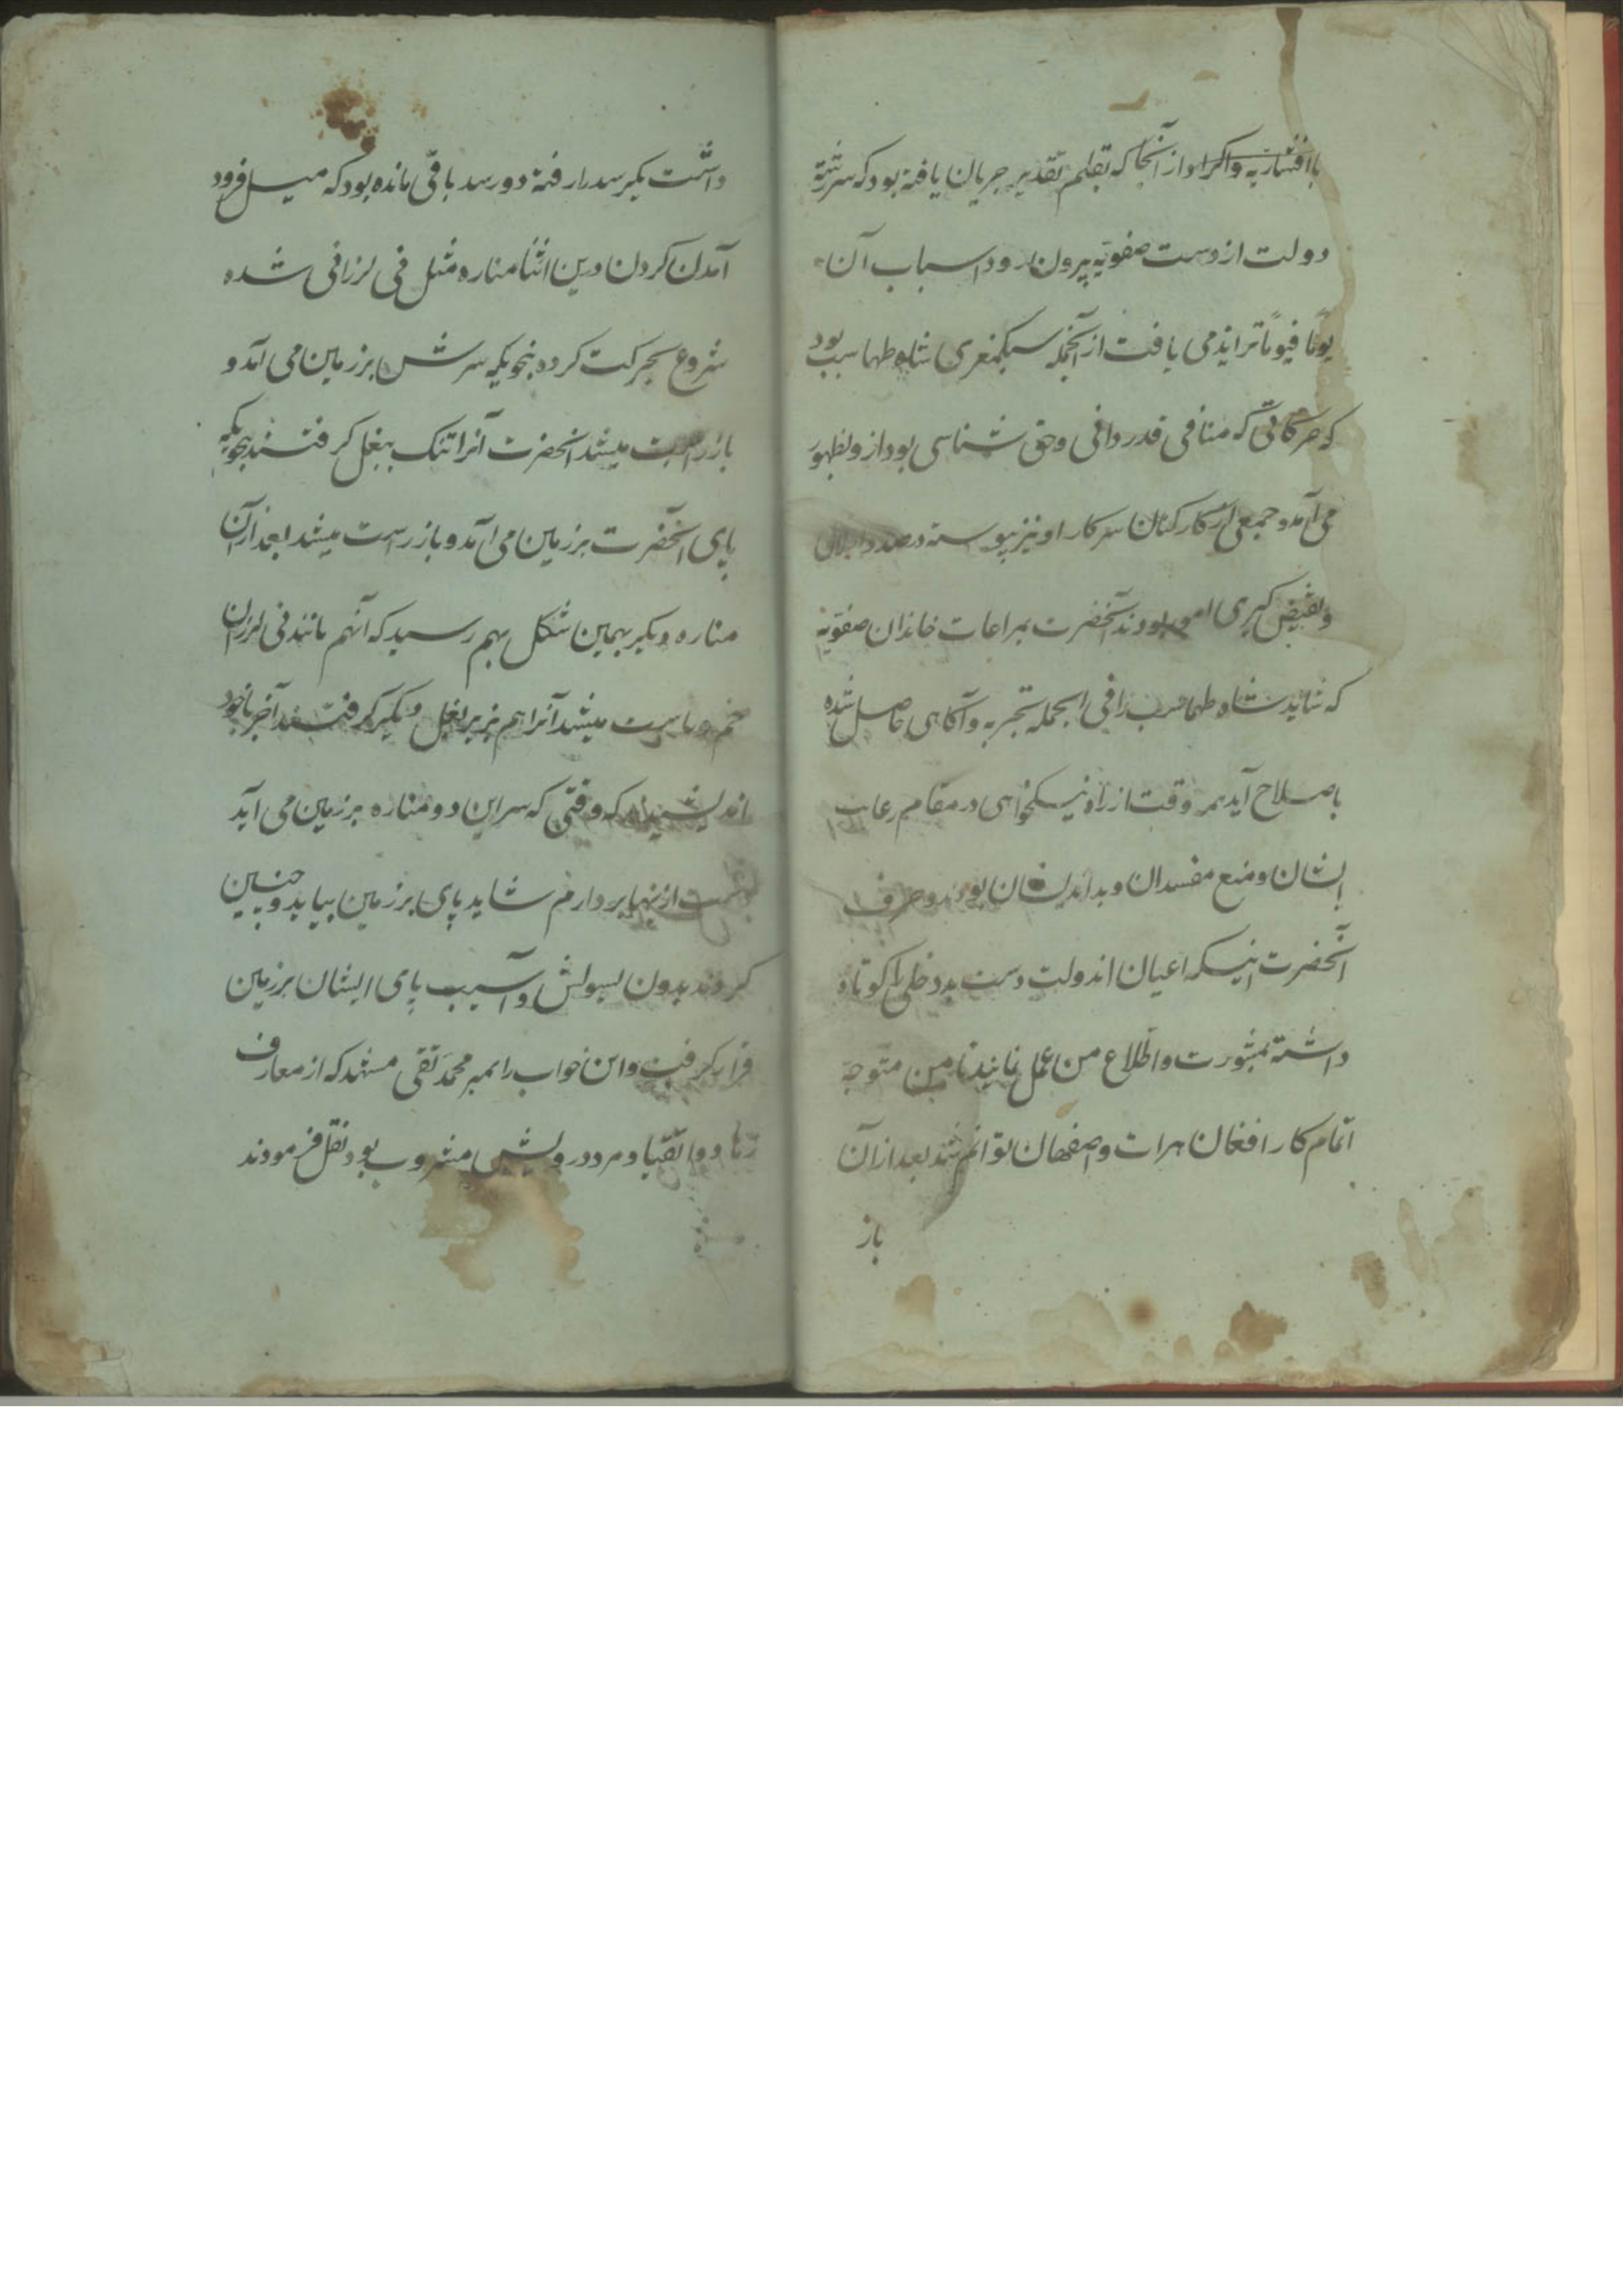 با افشاریه و اکراد از آنجا که بقلم تقدیر جریان یافته بود که سررشته
دولت از دست صفویه بیرون رود اسباب آن
یوماً فیوماً تزاید می یافت از آنجمله سبکمغزی شاه طهماسب بود
که حرکاتی که منافی قدردانی و حق شناسی بود ازو بظهور
می آمد و جمعی از کارکنان سرکار او نیز پیوسته درصدد اخلال
و نقیض گیری امور بودند آنحضرت بمراعات خاندان صفویه
که شاید شاه طهماسب را فی الجمله تجربه و آگاهی حاصل شده
باصلاح آید هر وقت از راه نیکخواهی در مقام رعایت
ایشان و منع مفسدان و بداندیشان بودند و حرف
آنحضرت اینکه اعیان اندولت دست بددخلی را کوتاه
داشته بمشورت و اطلاع من عمل نمایند تا من متوجه
اتمام کار افغان هرات و اصفهان توانم شد بعد از آن
باز
داشت یکرسد را رفته دو رسد باقی مانده بود که میل فرود
آمدن کردن درین اثنا مناره مثل نی لرزانی شده
شروع بحرکت کرده بنحویکه سرش بر زمین می آمد و
باز راست میشد آنحضرت آنرا تنک ببغل کرفتند بنحویکه
پای آنحضرت بر زمین می آمد و باز راست میشد بعد از آن
مناره دیکر بهمین شکل بهم رسید که آنهم مانند نی لرزان
خم و راست میشد آنرا هم بزیر بغل دیکر کرفتند آخر با خود
اندیشیدند که وقتی که سر این دو مناره بر زمین می آید
دست ازینها بردارم شاید پای بر زمین بیاید و چنین
کردند بدون تشویش و آسیب پای ایشان بر زمین
قرار کرفت و این خواب را بمیر محمد تقی مشهد که از معارف
زهاد و اتقیا و مرد درویش مشرب بود نقل فرمودند